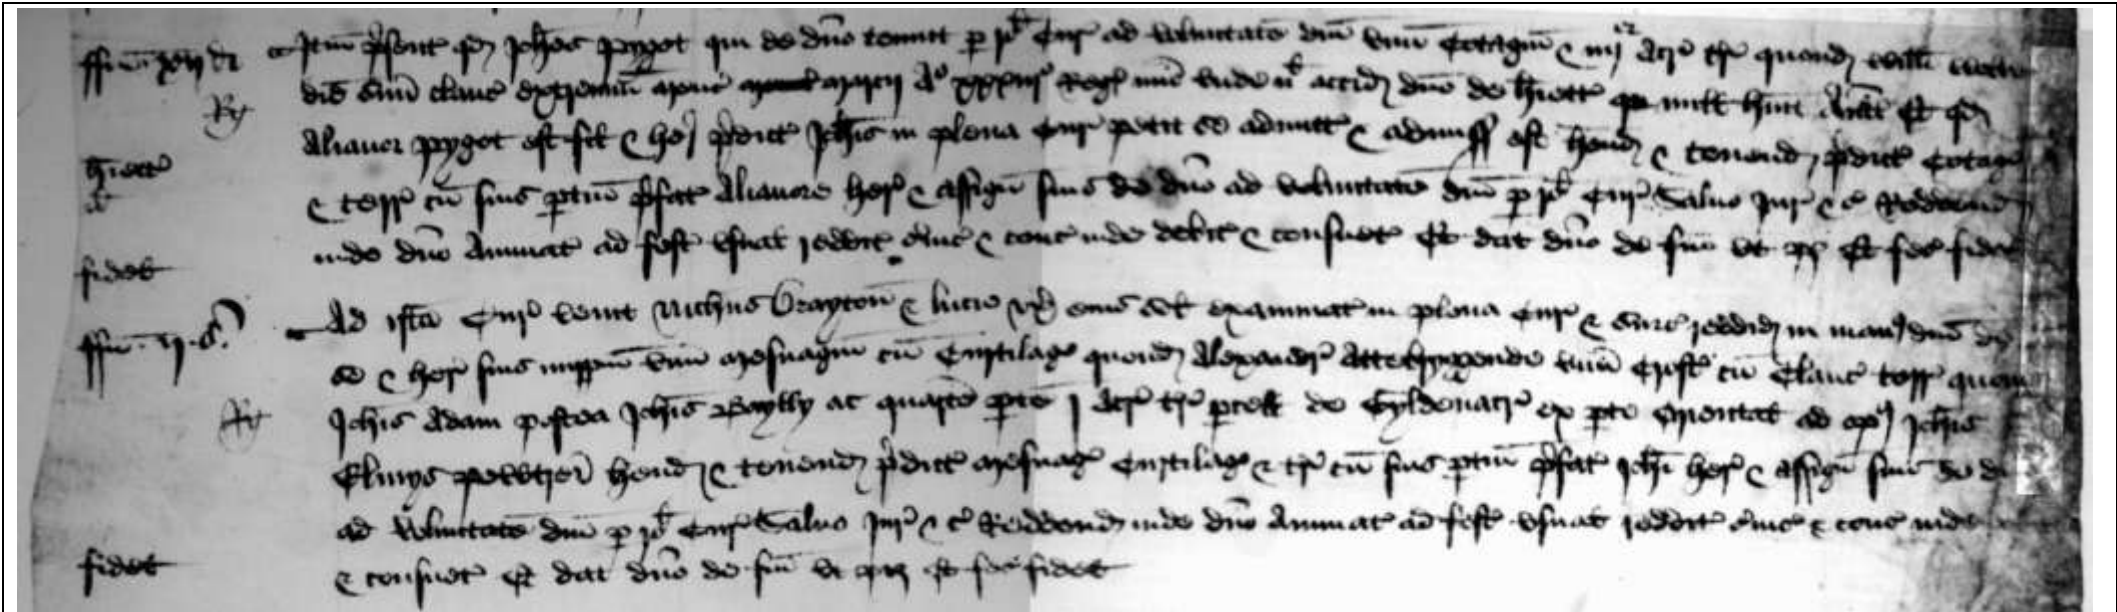 ffin xviij d Itm p'sent qd Johes Pygot qui de dno tenuit p rotl Cur ad voluntate dni unu Cotagiu & iiij acr tr quond Willi
Rx diē suu claus extremu  marcii Aº xxxiiº Reg nuc unde nl accid dno de hiett qz null huit aiat Et qd
hiett Alianor Pygot est fil & her p'dict Johis in plena Cur petit se admitt & admiss est hend & tenend p'dict Cotag
nl & terr cu suis ptin p'fat Alianore her & assign suis de dno ad voluntate dni p rotl Cur Salvo Jur &c Reddend
fidel inde dno Annuat ad fest usual reddit s'vic & cons inde debit & consuet Et dat dno de fin ut pz Et fec fidel
ffin ij s Ad ista Cur venit Nichus Drayton & lucie ux eius sol examinat in plena Cur & surs reddid in man dni de
se & her suis imppm unu mesuagiu cu Curtilag quond Alexandr Atte unu Croft cu claus terr quond
Rx Johis Adam postea Johis Baylly ac quarte parte j acr tr parcell de Gyldenacr ex pte orientali ad op Johis
Elmys hend & tenend p'dict mesuag Curtilag & tr cu suis ptin p'fat Johi her & assign suis de
ad voluntate dni p rotl Cur Salvo Jur &c Reddend inde dno Annuat ad fest usual reddit s'vic & cons inde
fidel & consuet Et dat dno de fin ut pz Et fec fidel